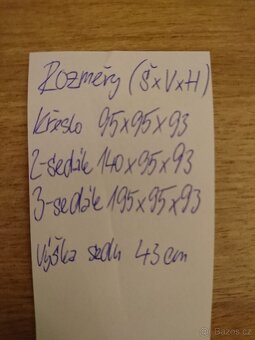 Rozměry (ŠxVxH)
Křeslo 95x95x93
2-sedák 140x95x93
3-sedák 195x95x93
výška sedu 43cm
Bazoš.cz